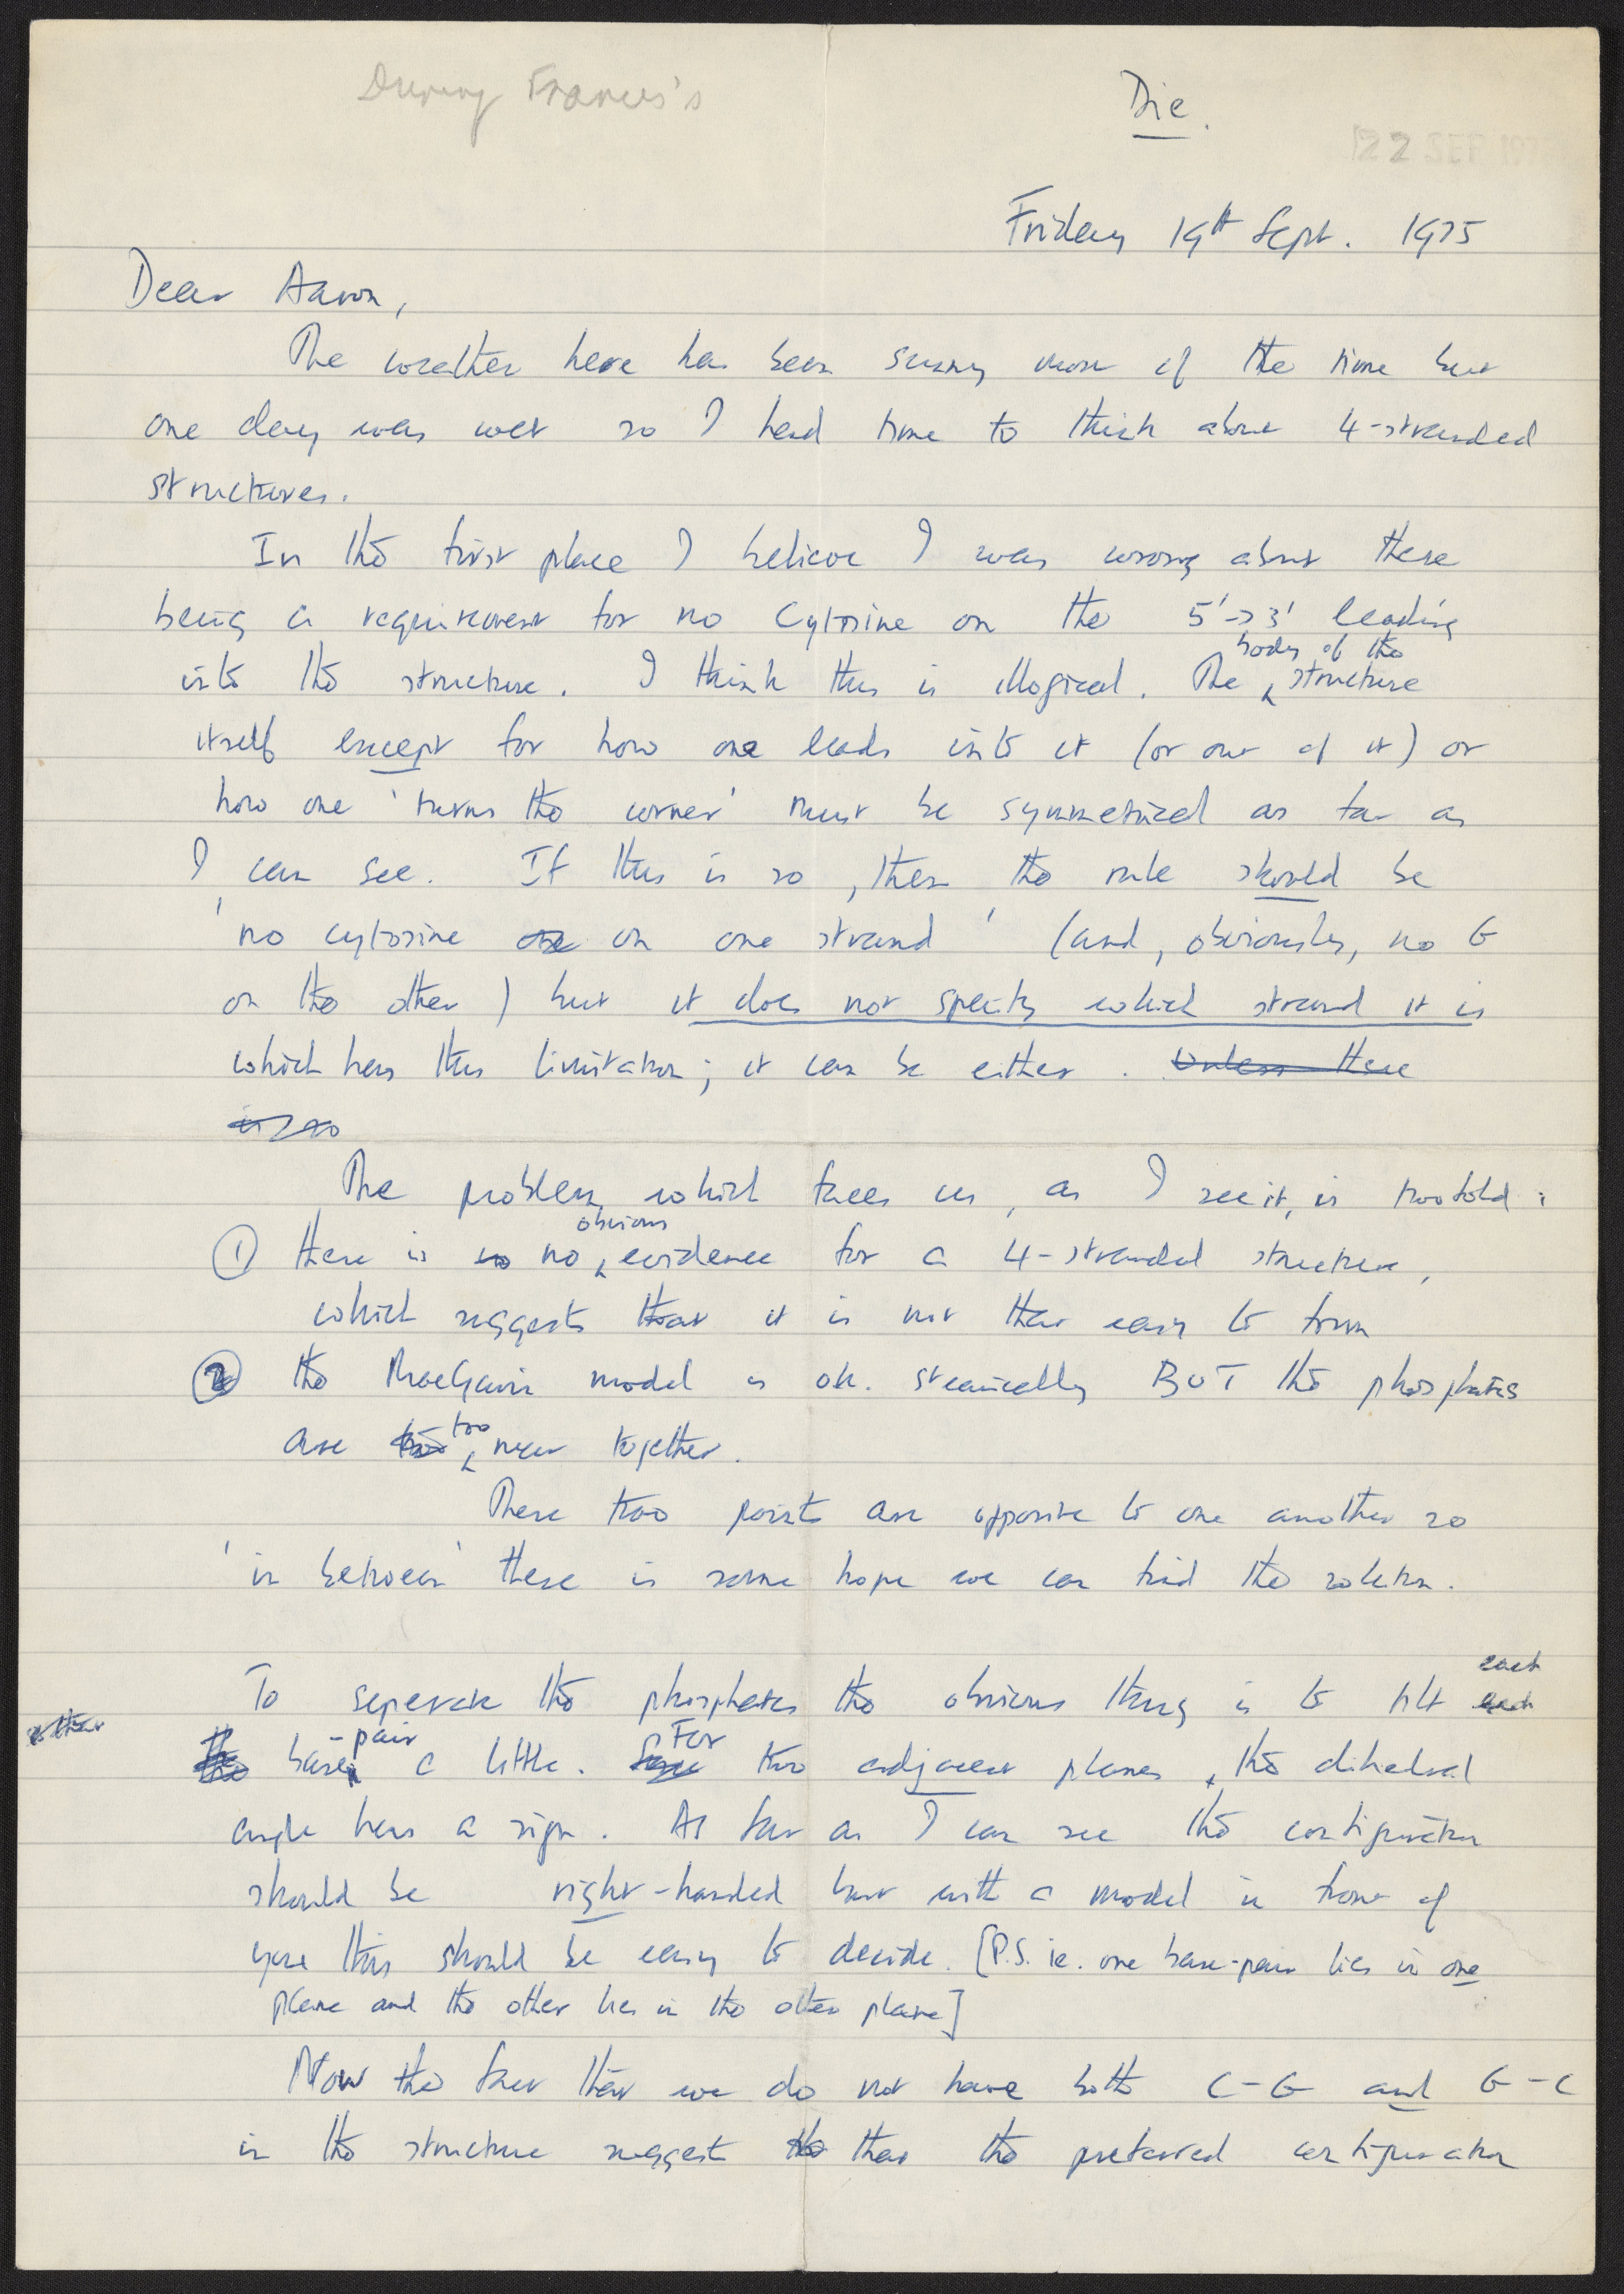 During Francis's
Die.
22 SEP 197
Friday 19th Sept. 1975
Dear Aaron,
The weather here has been sunny most of the time but
one day was wet so I had time to think about 4-stranded
structures.
In the first place I believe I was wrong about there
being a requirement for no Cytosine on the 5'->3' leading
body of the
into the structure. I think this is illogical. The structure
itself except for how one leads into it (or out of it) or
how one 'turns the corner' must be symmetrical as far as
I can see. If this is so, then the rule should be
'no cytosine on one strand' (and, obviously, no G
on the other) but it does not specify which strand it is
which has this limitation; it can be either. Unless there
is so
The problem which faces us, as I see it, is twofold:
obvious
① there is no no evidence for a 4-stranded structure,
which suggests that it is not that easy to form
② the MacGavin model is ok. sterically BUT the phosphates
too
are too near together.
These two points are opposite to one another so
'in between' there is some hope we can find the solution.
each
To seperate the phosphates the obvious thing is to tilt each
-pair For
the base a little. two adjacent planes, the dihedral
angle has a sign. As far as I can see the configuration
should be right-handed but with a model in front of
you this should be easy to decide. [P.S. ie. one base-pair lies in one
plane and the other lies in the other plane]
Now the fact that we do not have both C-G and G-C
in the structure suggest the that the preferred configuration